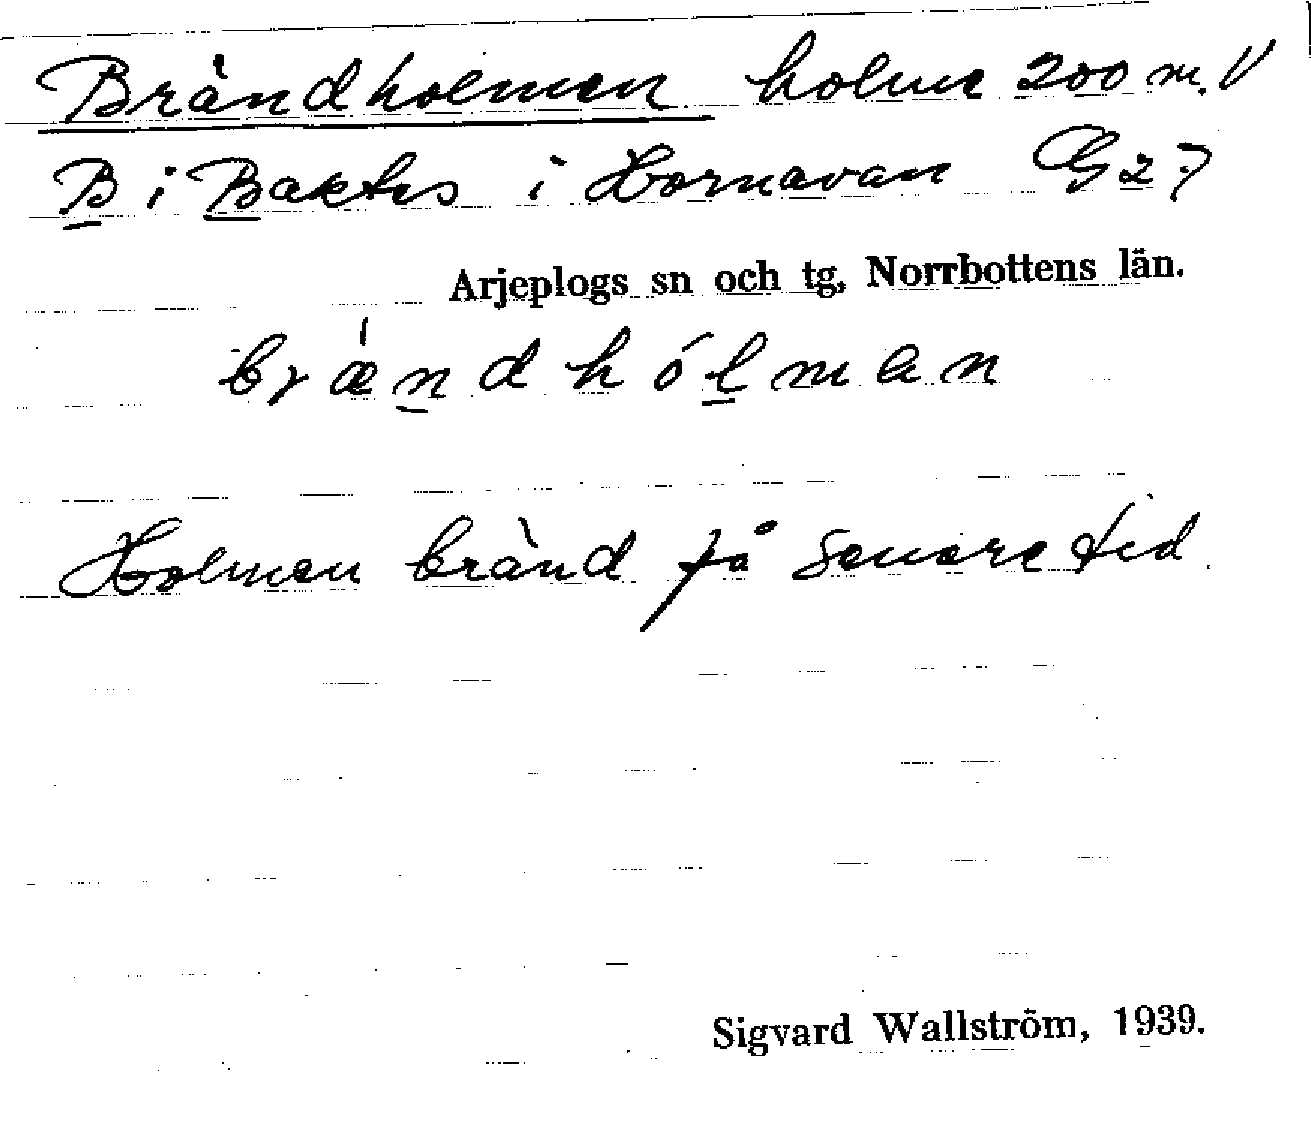 Brändholmen holme 200 m. V
B i Baktes i Hornavan G 27
Arjeplogs sn och tg, Norrbottens län.
brændhólman
Holmen bränd på senare tid.
Sigvard Wallström, 1939.